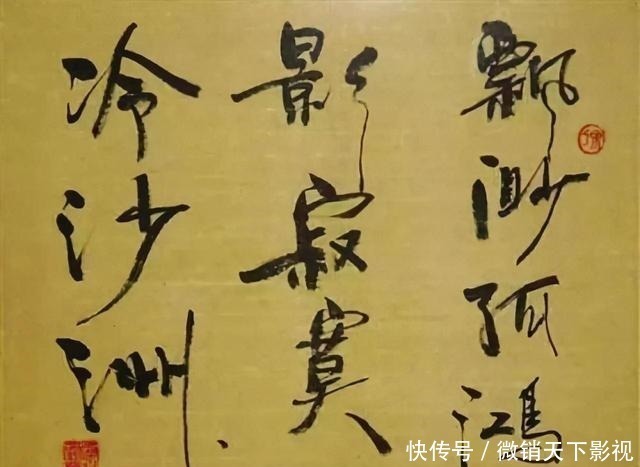 飘渺孤鸿
影寂寞
冷沙洲
快传号／微销天下影视